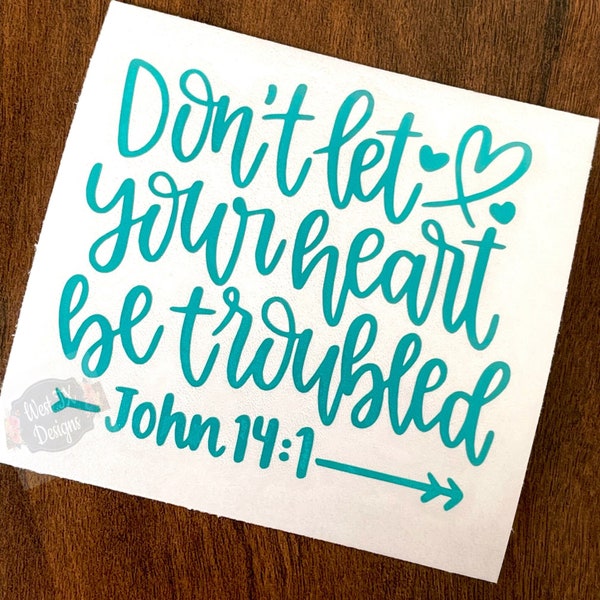 Don't let
your heart
be troubled
John 14:1
West TX
Designs